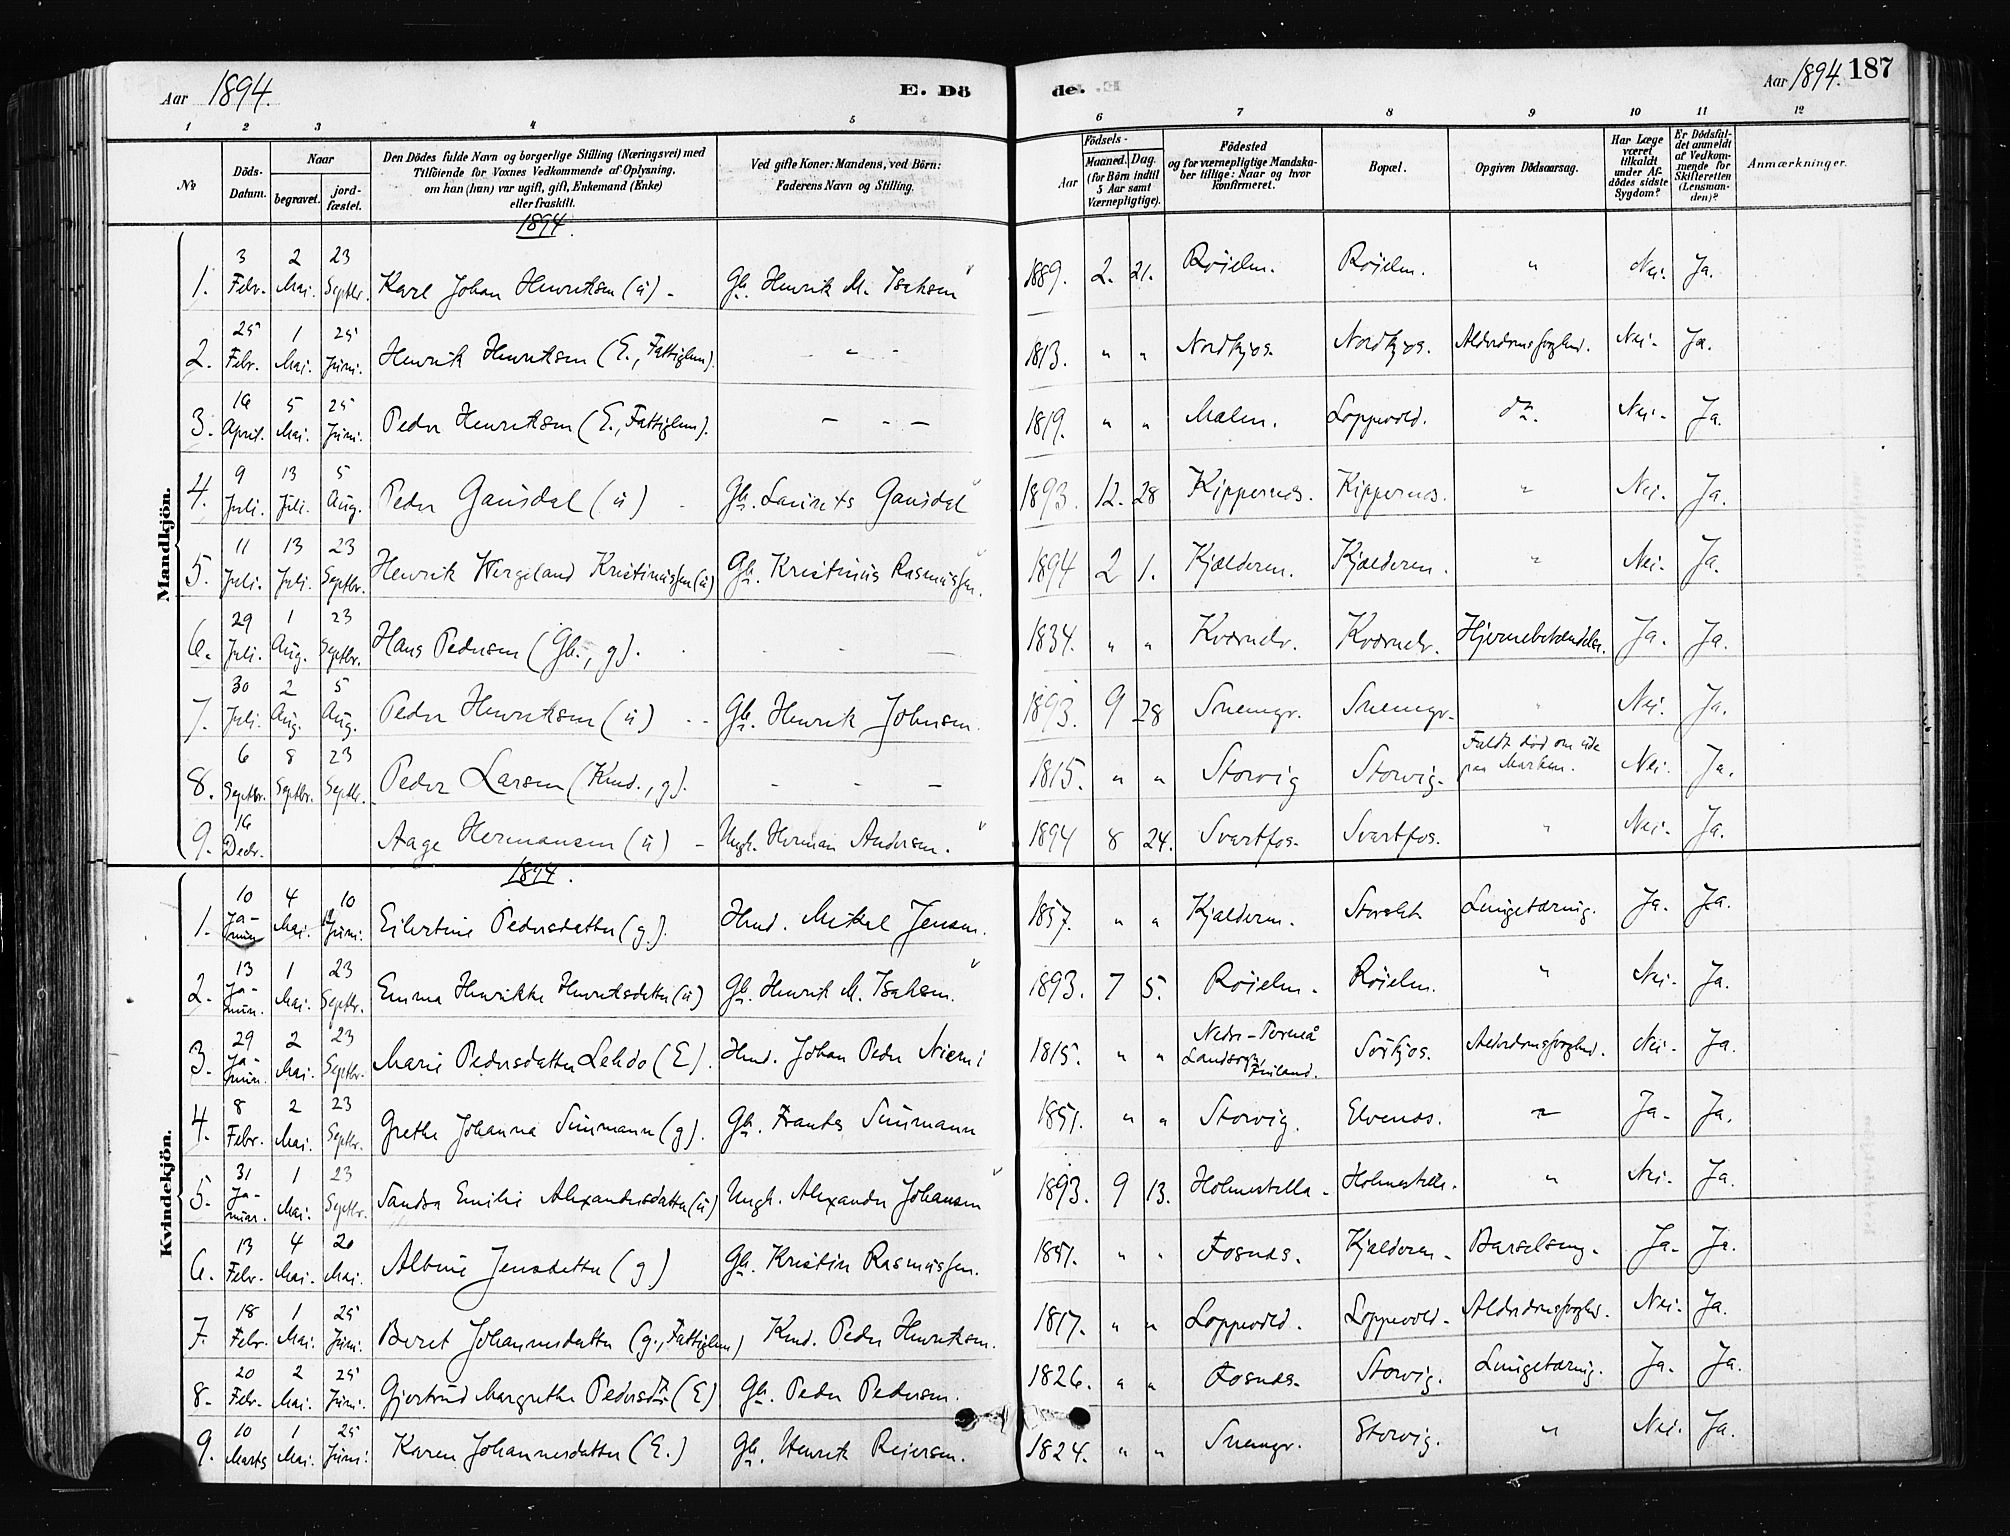 Aar 1894. E. Dö
de. Aar 1894. 187
1 2 3 4 5 6 7 8 9 10 11 12
№
Döds-Datum.
Naar
begravet.
jord-fæstet.
Den Dödes fulde Navn og borgerlige Stilling (Næringsvei) med
Tilföiende for Voxnes Vedkommende af Oplysning,
om han (hun) var ugift, gift, Enkemand (Enke)
eller fraskilt.
Ved gifte Koner: Mandens, ved Börn:
Faderens Navn og Stilling.
Födsels-
Aar
Maaned. Dag.
(for Börn indtil
5 Aar samt
Værnepligtige).
Födested
og for værnepligtige Mandska-
ber tillige: Naar og hvor
konfirmeret.
Bopæl.
Opgiven Dödsaarsag.
Har Læge
været
tilkaldt
under Af-
dödes sidste
Sygdom?
Er Dödsfal-
det anmeldt
af Vedkom-
mende for
Skifteretten
(Lensman-
den)?
Anmærkninger.
Mandkjön.
1894.
1. 3 Febr. 2 Mai. 23 Septbr. Karl Johan Henriksen (u) - Gb. Henrik M. Isaksen 1889. 2. 21. Röielm. Röielm. " Nei. Ja.
2. 25 Febr. 1 Mai. 25 Juni. Henrik Henriksen (E., Fattiglem). - " - 1813. " " Nordkjos. Nordkjos. Alderdomssvaghed. Nei. Ja.
3. 16 April. 5 Mai. 25 Juni. Peder Henriksen (E., Fattiglem). - - - 1819. " " Malen. Loppevold. do. Nei. Ja.
4. 9 Juli. 13 Juli. 5 Aug. Peder Gausdal (u) Gb. Laurits Gausdal 1893. 12. 28 Kippernes. Kippernes. " Nei. Ja.
5. 11 Juli. 13 Juli. 23 Septbr. Henrik Wergeland Kristinussen (u) Gb. Kristinus Rasmussen. 1894 2 1. Kjælderen. Kjælderen. " Nei. Ja.
6. 29 Juli. 1 Aug. 23 Septbr. Hans Pedersen (Gb., g). - - - 1834. " " Kværnelv. Kværnelv. Hjernebetændelse. Ja. Ja.
7. 30 Juli. 2 Aug. 5 Aug. Peder Henriksen (u) - - Gb. Henrik Johnsen. 1893. 9 28 Snemyr. Snemyr. " Nei. Ja.
8. 6 Septbr. 8 Septbr. 23 Septbr. Peder Larsen (Kmd., g). - - - 1815. " " Storvig Storvig. Faldt död om ude paa Marken. Nei. Ja.
9. 16 Decbr. Aage Hermansen (u) - Ungk. Herman Andersen. 1894 8 24. Svartfos. Svartfos. " Nei. Ja.
Kvindekjön.
1894.
1. 10 Januar 4 Mai. 10 Juni. Eilertine Pedersdatter (g.). Hmd. Mikal Jensen. 1857. " " Kjælderen. Storslet Lungetæring. Ja. Ja.
2. 13 Januar. 1 Mai. 23 Septbr. Emma Henrikke Henriksdatter (u) Gb. Henrik M. Isaksen. 1893. 7 5. Röielm. Röielm. " Nei. Ja.
3. 29 Januar. 2 Mai. 23 Septbr. Marie Pedersdatter Lehdo (E). Hmd. Johan Peder Niemi 1815. " " Nedre-Torneå Landsogn, Finland. Sörkjos. Alderdomssvaghed. Nei. Ja.
4. 8 Febr. 2 Mai. 23 Septbr. Grethe Johanna Sinimann (g). Gb. Frants Sinimann 1851. " " Storvig. Elvenes. " Ja. Ja.
5. 31 Januar. 1 Mai. 23 Septbr. Sandra Emilie Alexandersdatter (u) Ungk. Alexander Johansen 1893. 9 13. Holmestella. Holmestella. " Nei. Ja.
6. 13 Febr. 4 Mai. 20 Mai. Albine Jensdatter (g) Gb. Kristin Rasmussen. 1851. " " Fosnes. Kjælderen. Barselseng. Ja. Ja.
7. 18 Febr. 1 Mai. 25 Juni. Beret Johannesdatter (g., Fattiglem) Kmd. Peder Henriksen. 1817. " " Loppevold. Loppevold. Alderdomssvaghed. Nei. Ja.
8. 20 Febr. 2 Mai. 25 Juni. Gjertrud Margrethe Pedersdr. (E) Gb. Peder Pedersen. 1826. " " Fosnes. Storvig. Lungetæring. Ja. Ja.
9. 10 Marts 1 Mai. 25 Juni. Karen Johannesdatter (E.) Gb. Henrik Reiersen. 1824. " " Snemyr. Storvig. " Nei. Ja.